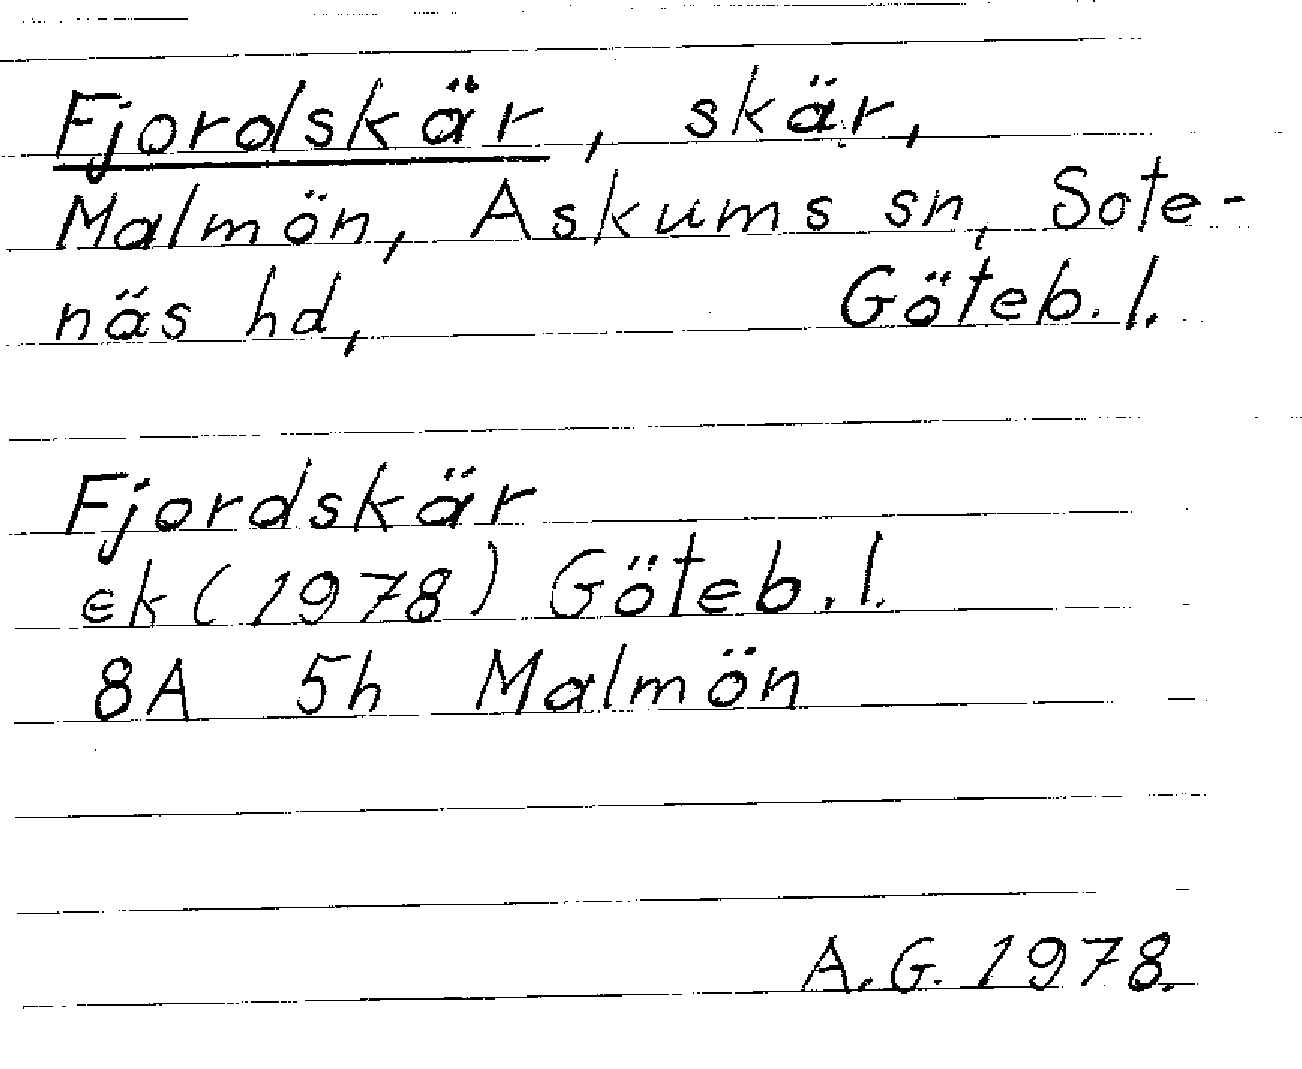 Fjordskär, skär,
Malmön, Askums sn, Sote-
näs hd, Göteb. l.
Fjordskär
ek (1978) Göteb. l.
8A 5h Malmön
A.G. 1978.